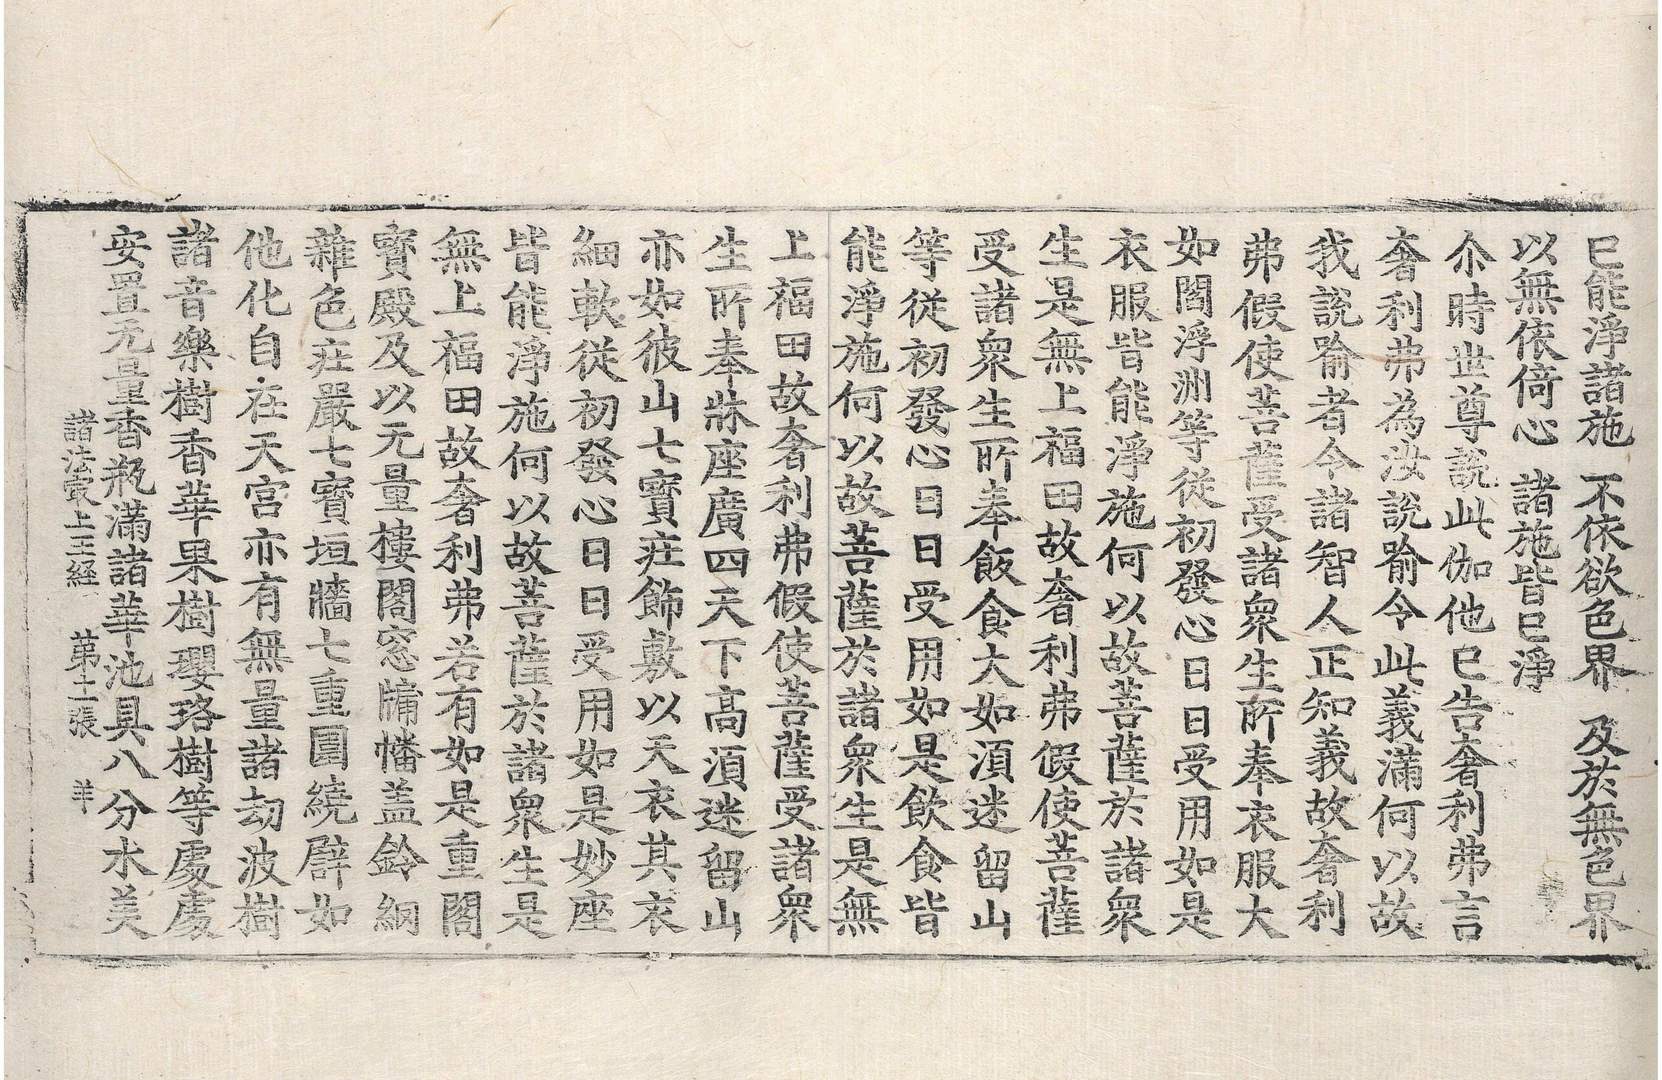 已能淨諸施 不依欲色界 及於無色界
以無依倚心 諸施皆已淨
尒時世尊說此伽他已告奢利弗言
奢利弗為汝說喻令此義滿何以故
我說喻者令諸智人正知義故奢利
弗假使菩薩受諸衆生所奉衣服大
如閻浮洲等從初發心日日受用如是
衣服皆能淨施何以故菩薩於諸衆
生是無上福田故奢利弗假使菩薩
受諸衆生所奉飯食大如湏迷留山
等從初發心日日受用如是飲食皆
能淨施何以故菩薩於諸衆生是無
上福田故奢利弗假使菩薩受諸衆
生所奉牀座廣四天下高湏迷留山
亦如彼山七寶莊飾敷以天衣其衣
細軟從初發心日日受用如是妙座
皆能淨施何以故菩薩於諸衆生是
無上福田故奢利弗若有如是重閣
寶殿及以无量樓閣窓牖幡盖鈴網
雜色莊嚴七寶垣牆七重圍繞譬如
他化自在天宮亦有無量諸劫波樹
諸音樂樹香華果樹瓔珞樹等處處
安置无量香瓶滿諸華池具八分水美
諸法冣上王經 苐十二張 羊